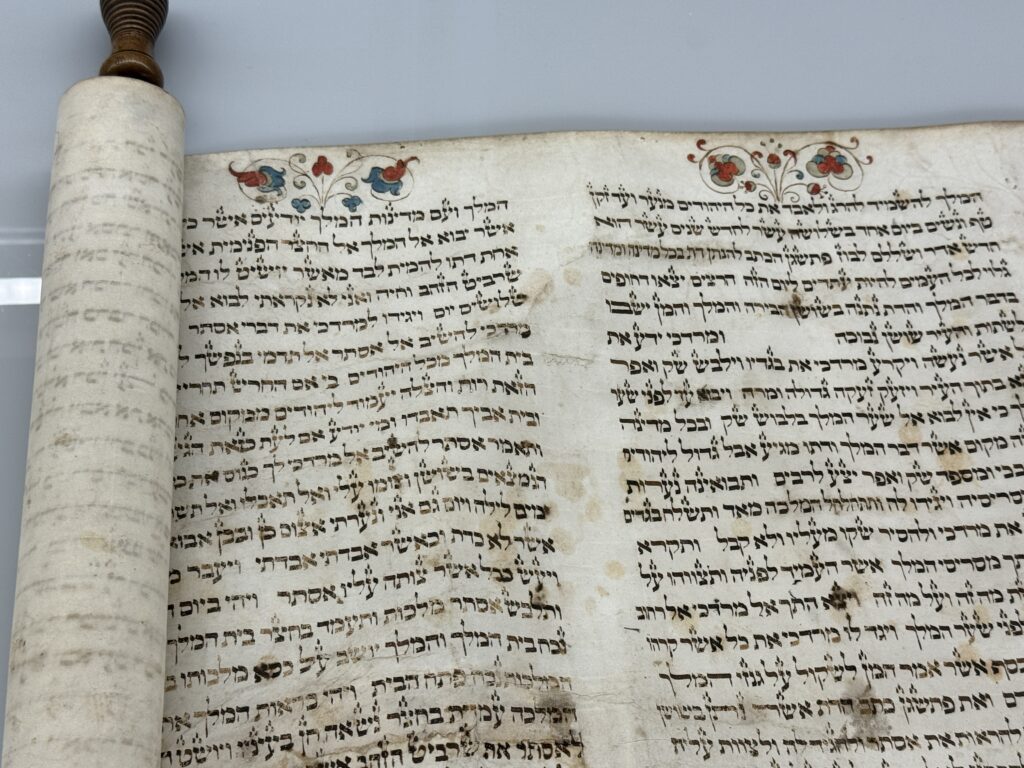 המלך להשמיד להרג ולאבד את כל היהודים מנער ועד זקן
טף ונשים ביום אחד בשלושה עשר לחדש שנים עשר הוא
חדש אדר ושללם לבוז פתשגן הכתב להנתן דת בכל מדינה ומדינה
גלוי לכל העמים להיות עתדים ליום הזה הרצים יצאו דחופים
בדבר המלך והדת נתנה בשושן הבירה והמלך והמן ישבו
לשתות והעיר שושן נבוכה ומרדכי ידע את
אשר נעשה ויקרע מרדכי את בגדיו וילבש שק ואפר
בתוך העיר ויזעק זעקה גדולה ומרה ויבוא עד לפני שער
כי אין לבוא אל שער המלך בלבוש שק ובכל מדינה
מקום אשר דבר המלך ודתו מגיע אבל גדול ליהודים
ומספד שק ואפר יצע לרבים ותבואינה נערות
ויגידו לה ותתחלחל המלכה מאד ותשלח בגדים
את מרדכי ולהסיר שקו מעליו ולא קבל ותקרא
מסריסי המלך אשר העמיד לפניה ותצוהו על
מה זה ועל מה זה ויצא התך אל מרדכי אל רחוב
שער המלך ויגד לו מרדכי את כל אשר קרהו
אשר אמר המן לשקול על גנזי המלך
ואת פתשגן כתב הדת אשר נתן בשושן
להראות את אסתר ולהגיד לה ולצוות עליה
המלך ועם מדינות המלך יודעים אשר
אשר יבוא אל המלך אל החצר הפנימית
אחת דתו להמית לבד מאשר יושיט לו
שרביט הזהב וחיה ואני לא נקראתי לבוא
שלושים יום ויגידו למרדכי את דברי אסתר
מרדכי להשיב אל אסתר אל תדמי בנפשך
בית המלך מכל היהודים כי אם החריש
הזאת רוח והצלה יעמוד ליהודים ממקום
ובית אביך תאבדו ומי יודע אם לעת כזאת
ותאמר אסתר להשיב אל מרדכי לך כנוס את
הנמצאים בשושן וצומו עלי ואל תאכלו ואל
ימים לילה ויום גם אני ונערתי אצום כן ובכן
אשר לא כדת וכאשר אבדתי אבדתי ויעבר
ויעש ככל אשר צותה עליו אסתר ויהי ביום
ותלבש אסתר מלכות ותעמד בחצר בית המלך
נכח בית המלך והמלך יושב על כסא מלכותו
המלכות נכח פתח הבית ויהי כראות המלך
המלכה עמדת בחצר נשאה חן בעיניו ויושט
לאסתר את שרביט הזהב אשר